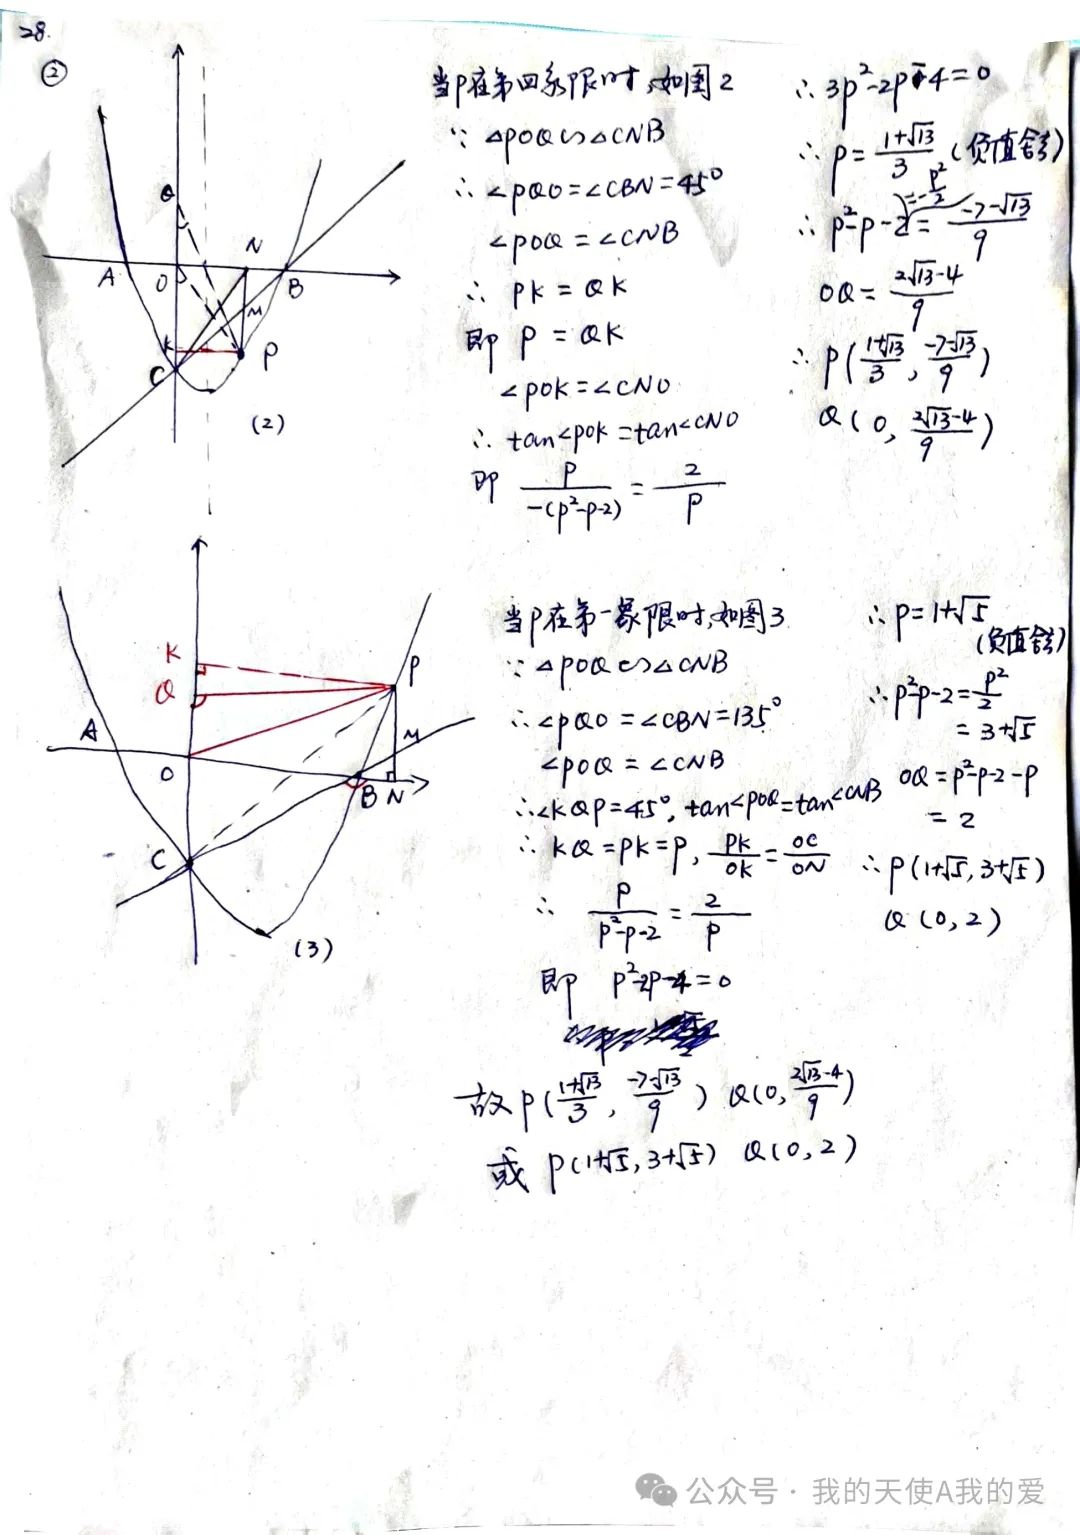 28.
②
Q
N
A
O
B
M
K
C
P
(2)
当P在第四象限时,如图2
∵ △POQ∽△CNB
∴ ∠PQO=∠CBN=45°
∠POQ=∠CNB
∴ PK=QK
即 P=QK
∠POK=∠CNO
∴ tan∠POK=tan∠CNO
即 P/-(P²-P-2) = 2/P
∴ 3P²-2P-4=0
∴ P=(1+√13)/3 (负值舍)
∴ P²-P-2=-P²/2=(-7-√13)/9
OQ=(2√13-4)/9
∴ P((1+√13)/3, (-7-√13)/9)
Q(0, (2√13-4)/9)
K
Q
P
A
M
O
B N
C
(3)
当P在第一象限时,如图3
∵ △POQ∽△CNB
∴ ∠PQO=∠CBN=135°
∠POQ=∠CNB
∴∠KQP=45°, tan∠POQ=tan∠CNB
∴ KQ=PK=P, PK/OK=OC/ON
∴ P/(P²-P-2)=2/P
即 P²-2P-4=0
∴ P=1+√5
(负值舍)
∴ P²-P-2=P²/2
=3+√5
OQ=P²-P-2-P
=2
∴ P(1+√5, 3+√5)
Q(0, 2)
故P((1+√13)/3, (-7-√13)/9) Q(0, (2√13-4)/9)
或 P(1+√5, 3+√5) Q(0, 2)
公众号·我的天使A我的爱